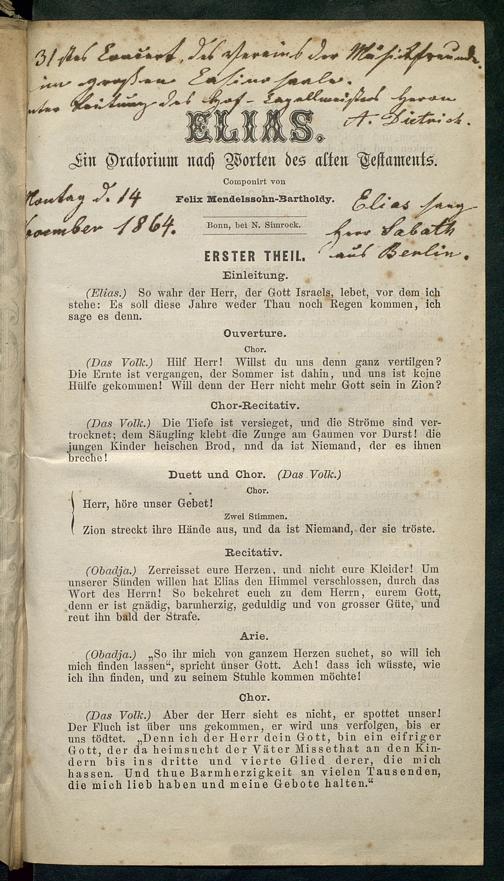 31stes Concert, des Vereins der Musikfreunde
im großen Casinosaale.
unter Leitung des Hof-Capellmeisters Herrn
A. Dietrich.
ELIAS.
Ein Oratorium nach Worten des alten Testaments.
Componirt von
Montag d. 14
Felix Mendelssohn-Bartholdy.
Elias sang
November 1864.
Bonn, bei N. Simrock.
Herr Sabath
aus Berlin.
ERSTER THEIL.
Einleitung.
(Elias.) So wahr der Herr, der Gott Israels, lebet, vor dem ich
stehe: Es soll diese Jahre weder Thau noch Regen kommen, ich
sage es denn.
Ouverture.
Chor.
(Das Volk.) Hilf Herr! Willst du uns denn ganz vertilgen?
Die Ernte ist vergangen, der Sommer ist dahin, und uns ist keine
Hülfe gekommen! Will denn der Herr nicht mehr Gott sein in Zion?
Chor-Recitativ.
(Das Volk.) Die Tiefe ist versieget, und die Ströme sind ver-
trocknet; dem Säugling klebt die Zunge am Gaumen vor Durst! die
jungen Kinder heischen Brod, nnd da ist Niemand, der es ihnen
breche!
Duett und Chor. (Das Volk.)
Chor.
Herr, höre unser Gebet!
Zwei Stimmen.
Zion streckt ihre Hände aus, und da ist Niemand, der sie tröste.
Recitativ.
(Obadja.) Zerreisset eure Herzen, und nicht eure Kleider! Um
unserer Sünden willen hat Elias den Himmel verschlossen, durch das
Wort des Herrn! So bekehret euch zu dem Herrn, eurem Gott,
denn er ist gnädig, barmherzig, geduldig und von grosser Güte, und
reut ihn bald der Strafe.
Arie.
(Obadja.) „So ihr mich von ganzem Herzen suchet, so will ich
mich finden lassen“, spricht unser Gott. Ach! dass ich wüsste, wie
ich ihn finden, und zu seinem Stuhle kommen möchte!
Chor.
(Das Volk.) Aber der Herr sieht es nicht, er spottet unser!
Der Fluch ist über uns gekommen, er wird uns verfolgen, bis er
uns tödtet. „Denn ich der Herr dein Gott, bin ein eifriger
Gott, der da heimsucht der Väter Missethat an den Kin-
dern bis ins dritte und vierte Glied derer, die mich
hassen. Und thue Barmherzigkeit an vielen Tausenden,
die mich lieb haben und meine Gebote halten.“